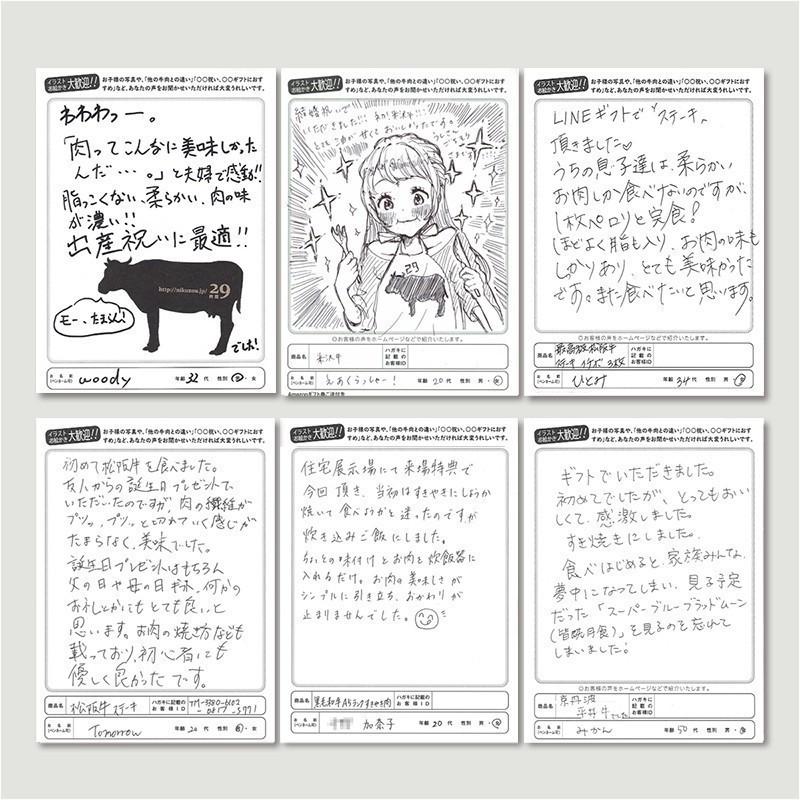 イラスト お絵かき 大歓迎!!
お子様の写真や、「他の牛肉との違い」「〇〇祝い、〇〇ギフトにおす
すめ」など、あなたの声をお聞かせいただければ大変うれしいです。
わわわっー。
「肉ってこんなに美味しかった
んだ…。」と夫婦で感動!!
脂っこくない、柔らかい、肉の味
が濃い!!
出産祝いに最適!!
http://nikuzou.jp/ 29
モー、たまらん!
でした!
お名前 (ペンネーム可) woody 年齢 32 代 性別 男・女
イラスト お絵かき 大歓迎!!
お子様の写真や、「他の牛肉との違い」「〇〇祝い、〇〇ギフトにおす
すめ」など、あなたの声をお聞かせいただければ大変うれしいです。
結婚祝いで
いただきました!!!
29
◎お客様の声をホームページなどで紹介いたします。
商品名 米沢牛 ハガキに記載のお客様ID
お名前 (ペンネーム可) えあくらっしゃー! 年齢 20 代 性別 男・女
イラスト お絵かき 大歓迎!!
お子様の写真や、「他の牛肉との違い」「〇〇祝い、〇〇ギフトにおす
すめ」など、あなたの声をお聞かせいただければ大変うれしいです。
LINEギフトで"ステーキ"
頂きました♡
うちの息子達は、柔らかい
お肉しか食べないのですが、
1枚ペロリと完食!
ほどよく脂も入り、お肉の味も
しっかりあり、とても美味かった
です。また食べたいと思います。
◎お客様の声をホームページなどで紹介いたします。
商品名 最高級松阪牛 ステーキ イチボ 3枚 ハガキに記載のお客様ID
お名前 (ペンネーム可) ひとみ 年齢 34 代 性別 男・女
イラスト お絵かき 大歓迎!!
お子様の写真や、「他の牛肉との違い」「〇〇祝い、〇〇ギフトにおす
すめ」など、あなたの声をお聞かせいただければ大変うれしいです。
初めて松阪牛を食べました。
友人からの誕生日プレゼントで
いただいたのですが、肉の繊維が
プツッ、プツッと切れていく感じが
たまらなく、美味でした。
誕生日プレゼントはもちろん
父の日や母の日ギフト、何かの
お礼とかにもとても良いと
思います。お肉の焼き方なども
載っており、初心者にも
優しく良かったです。
商品名 松阪牛ステーキ ハガキに記載のお客様ID
お名前 (ペンネーム可) Tomorrow 年齢 20 代 性別 男・女
イラスト お絵かき 大歓迎!!
お子様の写真や、「他の牛肉との違い」「〇〇祝い、〇〇ギフトにおす
すめ」など、あなたの声をお聞かせいただければ大変うれしいです。
住宅展示場にて来場特典で
今回頂き、当初はすきやきにしようか
焼いて食べようかと迷ったのですが
炊き込みご飯にしました。
ちょっとの味付けとお肉を炊飯器に
入れるだけ。お肉の美味しさが
シンプルに引き立ち、おかわりが
止まりませんでした。
商品名 黒毛和牛A5ランクすきやき肉 ハガキに記載のお客様ID
お名前 (ペンネーム可) 加奈子 年齢 20 代 性別 男・女
イラスト お絵かき 大歓迎!!
お子様の写真や、「他の牛肉との違い」「〇〇祝い、〇〇ギフトにおす
すめ」など、あなたの声をお聞かせいただければ大変うれしいです。
ギフトでいただきました。
初めてでしたが、とってもおい
しくて、感激しました。
すき焼きにしました。
食べはじめると、家族みんな、
夢中になってしまい、見る予定
だった「スーパーブルーブラッドムーン
(皆既月食)」を見るのを忘れて
しまいました!
◎お客様の声をホームページなどで紹介いたします。
商品名 京丹波 平井牛でした ハガキに記載のお客様ID
お名前 (ペンネーム可) みかん 年齢 50 代 性別 男・女